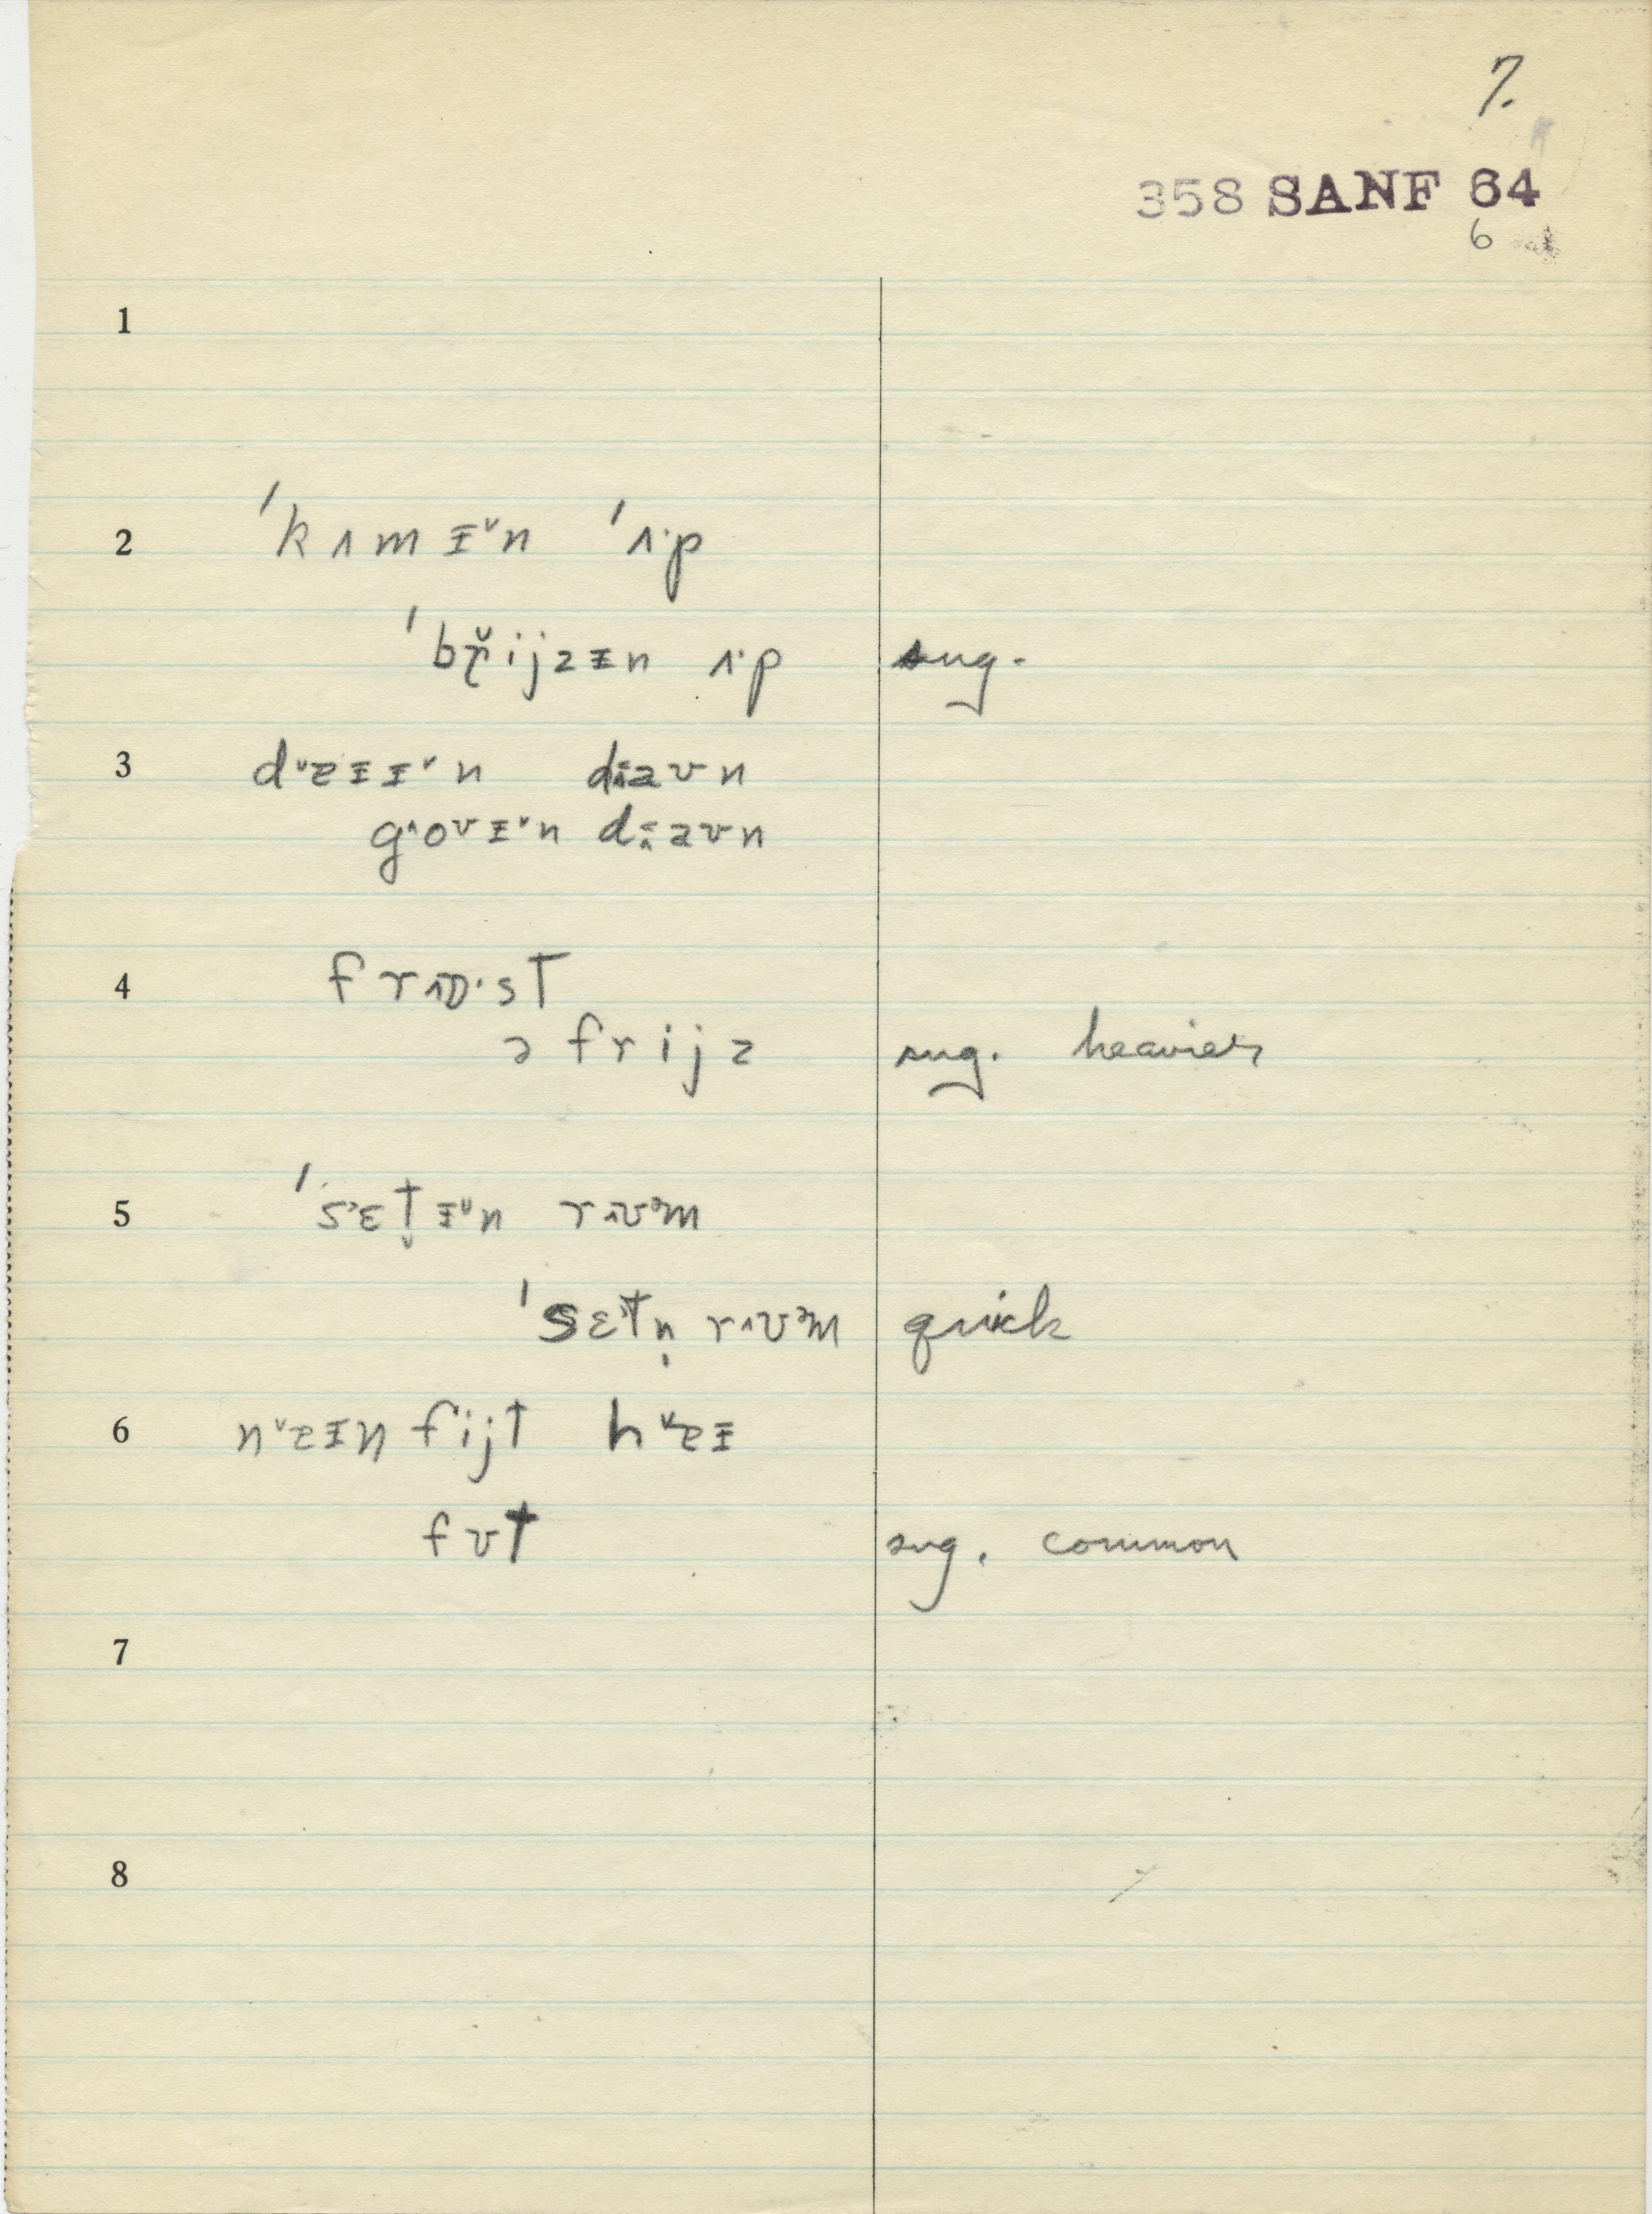 7.
358 SANF 64
6
1
2 ˈkʌmɪ˅n ˈʌ·p
ˈbɽ̆ijzɪn ʌ·p sug.
3 d˅eɪɪ˅n da̵ʊn
g˄oʊɪ˅n daʊn
4 frɒ·st
ə frijz sug. heavier
5 ˈsɛt̬ɪ˅n r˄ʊᵊm
ˈsɛtn̩ r˄ʊᵊm quick
6 n˅eɪn fijt h˅eɪ
fʊt sug. common
7
8